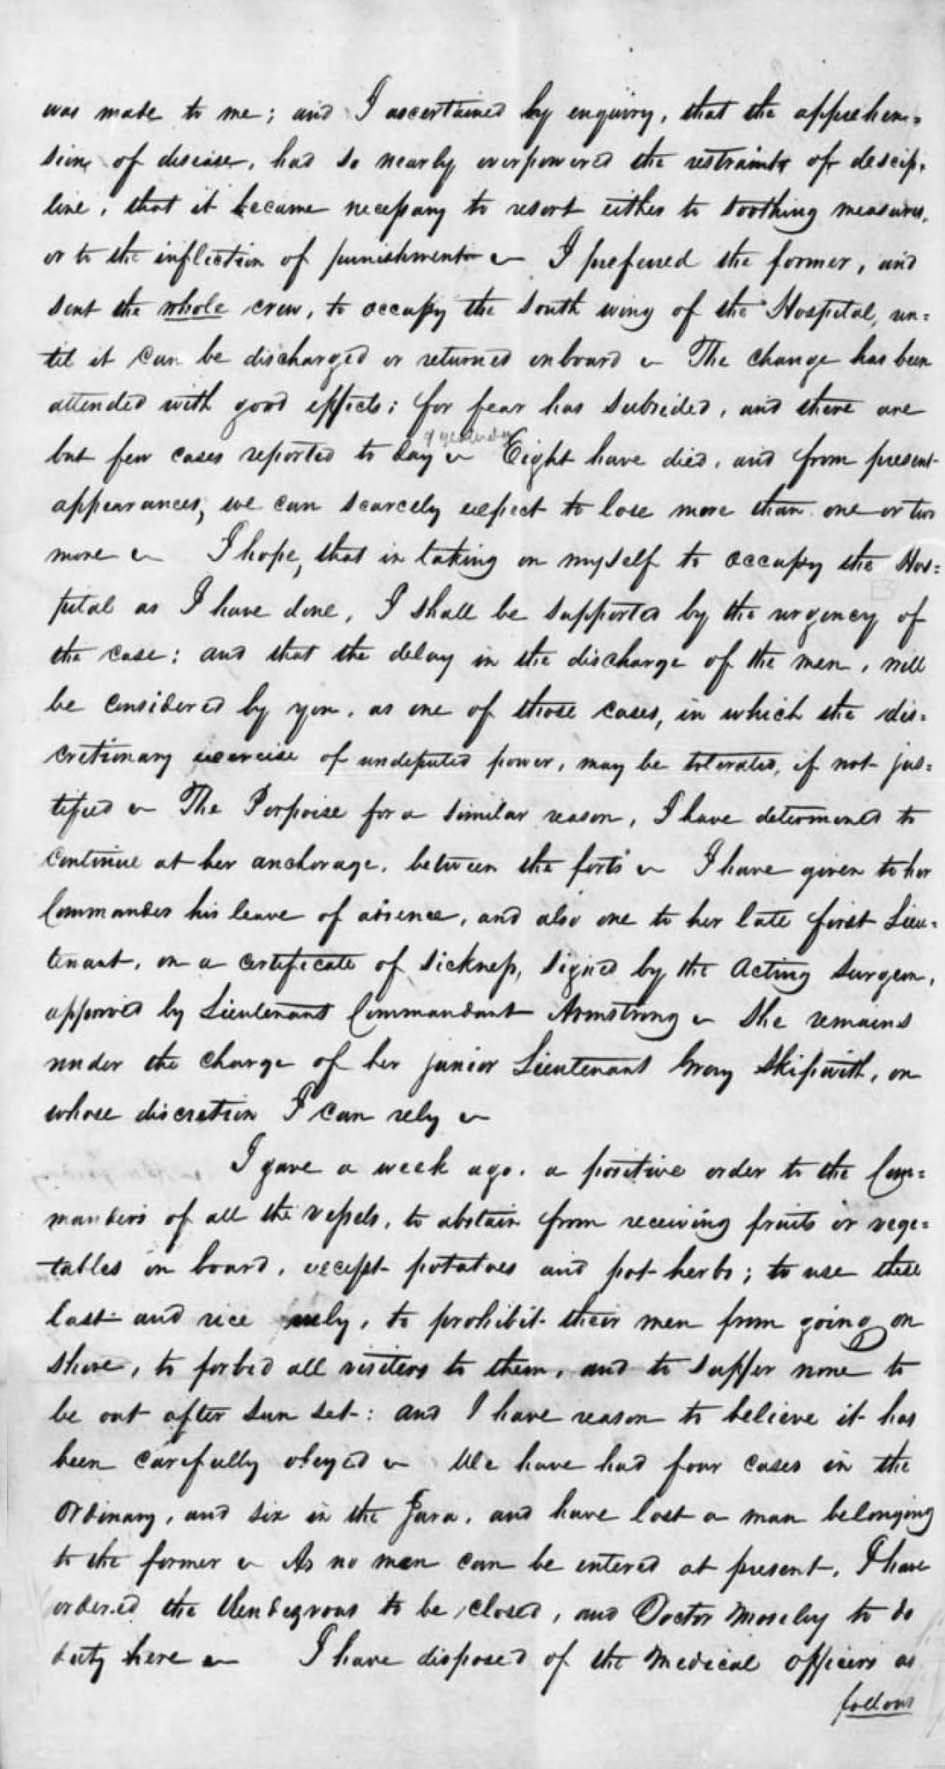 was made to me; and I ascertained by enquiry, that the apprehen=
sions of disease, had so nearly overpowered the restraints of descip=
line, that it became necessary to resort either to soothing measures,
or to the infliction of punishment ~ I preferred the former, and
sent the whole crew, to occupy the south wing of the Hospital, un=
til it can be discharged or returned onboard ~ The change has been
attended with good effects; for fear has subsided, and there are
& yesterday
but few cases reported to day ~ Eight have died, and from present
appearances, we can scarcely expect to lose more than one or two
more ~ I hope, that in taking on myself to occupy the Hos=
pital as I have done, I shall be supported by the urgency of
the case; and that the delay in the discharge of the men, will
be considered by you, as one of those cases, in which the dis=
cretionary exercise of undeputed power, may be tolerated, if not jus=
tified ~ The Porpoise for a similar reason, I have determined to
continue at her anchorage, between the forts ~ I have given to her
Commander his leave of absence, and also one to her late first Lieu=
tenant, on a certificate of sickness, signed by the Acting Surgeon,
approved by Lieutenant Commandant Armstrong ~ She remains
under the charge of her junior Lieutenant Gray Skipwith, on
whose discretion I can rely ~
I gave a week ago, a positive order to the Com=
manders of all the vessels, to abstain from receiving fruits or vege=
tables on board, except potatoes and pot-herbs; to use these
last and rice only, to prohibit their men from going on
shore, to forbid all visiters to them, and to suffer none to
be out after sun set: and I have reason to believe it has
been carefully obeyed ~ We have had four cases in the
Ordinary, and six in the Java, and have lost a man belonging
to the former ~ As no men can be entered at present, I have
ordered the Rendezvous to be closed, and Doctor Moseley to do
duty here ~ I have disposed of the Medical officers as
follows